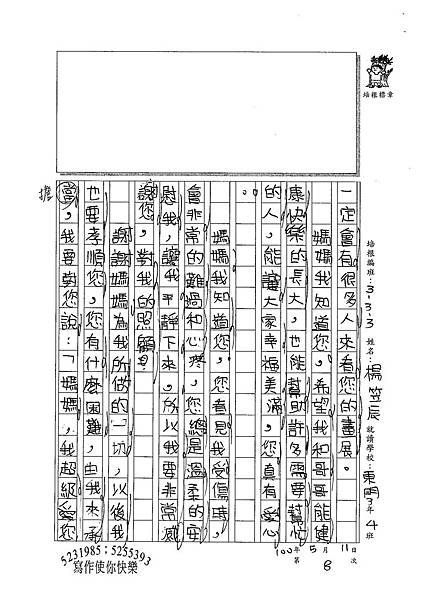 培根楷章
培根編班：3-3-3 姓名：楊笠辰 就讀學校：東明3年4班
100年5月11日
第8次
一定會有很多人來看您的畫展。
媽媽我知道您，希望我和哥哥能健
康快樂的長大，也能幫助許多需要幫忙
的人，能讓大家幸福美滿。您真有愛心
。
媽媽我知道您，您看見我受傷時，
會非常的難過和心疼，您總是溫柔的安
慰我，讓我平靜下來，所以我要非常感
謝您，對我的照顧。
謝謝媽媽為我所做的一切，以後我
也要孝順您，您有什麼困難，由我來承
當，我要對您說：「媽媽，我超級愛您
擔
5231985；5255393
寫作使你快樂